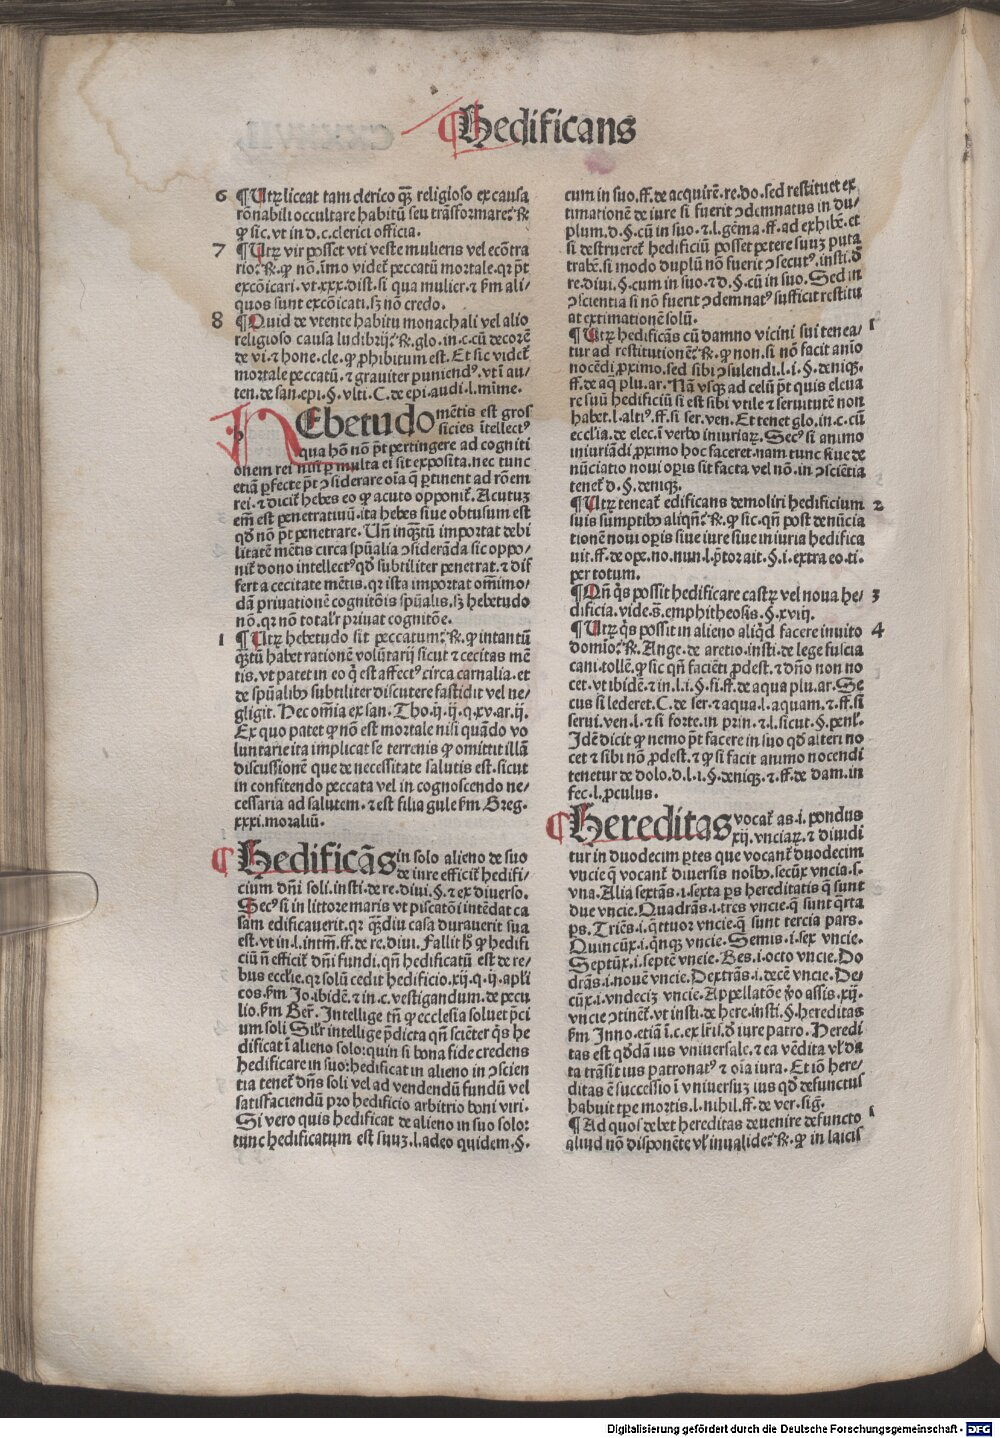 ¶ Hedificans
6 ¶ Utrꝫ liceat tam clerico qᷓꝫ religioso ex causa
rōnabili occultare habitū seu trāsformare? ℞.
ꝙ sic. vt in d. c. clerici officia.
7 ¶ Utrꝫ vir posset vti veste mulieris vel ecōtra
rio? ℞. ꝙ nō. īmo videt᷑ peccatū mortale. qꝛ p̄t
excōicari. vt .xxx. dist. si qua mulier. ⁊ ẜm ali/
quos sunt excōicati. sꝫ nō credo.
8 ¶ Quid de vtente habitu monachali vel alio
religioso causa ludibrij? ℞. glo. in .c. cū decorē
de vi. ⁊ hone. cle. ꝙ ꝓhibitum est. Et sic videt᷑
mortale peccatū. ⁊ grauiter puniendꝰ. vt ī au/
ten. de san. epi. §. vlti. C. de epi. audi. l. mime.
Hebetudo mētis est gros
sicies ītellectꝰ
qua hō nō p̄t pertingere ad cogniti
onem rei nisi ꝑ multa ei sit exposita. nec tunc
etiā ꝑfecte p̄t ↄsiderare oīa q̄ ꝑtinent ad rōem
rei. ⁊ dicit᷑ hebes eo ꝙ acuto opponit᷑. Acutuꝫ
em̄ est penetratiuū. ita hebes siue obtusum est
qd̄ nō p̄t penetrare. Un̄ inqᷓꝫtū importat debi
litatē mētis circa spūalia ↄsiderāda sic oppo/
nit᷑ dono intellectꝰ qd̄ subtiliter penetrat. ⁊ dif
fert a cecitate mētis. qꝛ ista importat om̄imo/
dā priuationē cognitōis spūalis. sꝫ hebetudo
nō. qꝛ nō total᷑r priuat cognitōe.
1 ¶ Utrꝫ hebetudo sit peccatum? ℞. ꝙ intantū
qᷓꝫtū habet rationē volūtarij sicut ⁊ cecitas mē
tis. vt patet in eo q̇ est affectꝰ circa carnalia. et
de spūalibꝰ subtiliter discutere fastidit vel ne/
gligit. Hec om̄ia ex san. Tho. ij. ij. q. xv. ar. ij.
Ex quo patet ꝙ nō est mortale nisi quādo vo
luntarie ita implicat se terrenis ꝙ omittit illā
discussionē que de necessitate salutis est. sicut
in confitendo peccata vel in cognoscendo ne/
cessaria ad salutem. ⁊ est filia gule ẜm Greg.
xxxi. moraliū.
¶ Hedificās in solo alieno de suo
de iure efficit᷑ hedifi/
cium dn̄i soli. insti. de re. diui. §. ⁊ ex diuerso.
Secꝰ si in littore maris vt piscatōi intēdat ca
sam edificauerit. qꝛ qᷓꝫdiu casa durauerit sua
est. vt in .l. intm̄. ff. de re. diui. Fallit h̄ ꝙ hedifi
ciū n̄ efficit᷑ dn̄i fundi. qn̄ hedificatū est de re/
bus eccl̄ie. qꝛ solū cedit hedificio. xij. q. ij. apl̄i
cos. ẜm Jo. ibidē. ⁊ in .c. vestigandum. de pecu
lio. ẜm Ber̄. Intellige tn̄ ꝙ ecclesia soluet p̄ci
um soli Sil᷑r intellige p̄dicta qn̄ sciēter q̇s he
dificat ī alieno solo: quin si bona fide credens
hedificare in suo: hedificat in alieno in ↄscien
tia tenet᷑ dn̄s soli vel ad vendendū fundū vel
satisfaciendū pro hedificio arbitrio boni viri.
Si vero quis hedificat de alieno in suo solo:
tunc hedificatum est suuꝫ. l. adeo quidem. §.
cum in suo. ff. de acquirē. re. do. sed restituet ex
timationē de iure si fuerit ↄdemnatus in du/
plum. d. §. cū in suo. ⁊ .l. gēma. ff. ad exhibē. et
si destrueret᷑ hedificiū posset petere suuꝫ puta
trabē. si modo duplū nō fuerit ↄsecutꝰ. insti. d̄
re. diui. §. cum in suo. ⁊ d. §. cū in suo. Sed in
ↄscientia si nō fuerit ↄdemnatꝰ sufficit restitu
at extimationē solū.
¶ Utrꝫ hedificās cū damno vicini sui tenea/ 1
tur ad restitutionē? ℞. ꝙ non. si nō facit aīo
nocēdi ꝓximo. sed sibi ↄsulendi. l. i. §. deniqꝫ.
ff. de aq̄ plu. ar. Nā vsqꝫ ad celū p̄t quis eleua
re suū hedificiū si est sibi vtile ⁊ seruitutē non
habet. l. altiꝰ. ff. si ser. ven. Et tenet glo. in .c. cū
eccl̄ia. de elec. ī verbo iniuriaꝝ. Secꝰ si animo
iniuriādi ꝓximo hoc faceret. nam tunc siue de
nūciatio noui oꝑis sit facta vel nō. in ↄscīētia
tenet᷑ d. §. deniqꝫ.
¶ Utrꝫ teneat᷑ edificans demoliri hedificium 2
suis sumptibꝰ aliqn̄? ℞. ꝙ sic. qn̄ post denūcia
tionē noui oꝑis siue iure siue iniuria hedifica
uit. ff. de ope. no. nun. l. p̄tor ait. §. i. extra eo. ti.
per totum.
¶ Qn̄ q̇s possit hedificare castꝝ vel noua he/ 3
dificia. vide. s̄. emphitheosis. §. xviij.
¶ Utrꝫ q̇s possit in alieno aliq̇d facere inuito 4
domīo? ℞. Ange. de aretio. insti. de lege fuscia
cani. tollē. ꝙ sic qn̄ faciēti ꝓdest. ⁊ dn̄o non no
cet. vt ibidē. ⁊ in .l. i. §. fi. ff. de aqua plu. ar. Se
cus si lederet. C. de ser. ⁊ aqua. l. aquam. ⁊ ff. si
serui. ven. l. ⁊ si forte. in prin. ⁊ .l. sicut. §. penl᷑.
Idē dicit ꝙ nemo p̄t facere in suo qd̄ alteri no
cet ⁊ sibi nō ꝓdest. ⁊ ꝙ si facit animo nocendi
tenetur de dolo. d. l. i. §. deniqꝫ. ⁊ ff. de dam. in
fec. l. ꝓculus.
¶ Hereditas vocat᷑ as .i. pondus
xij. vnciaꝝ. ⁊ diuidi
tur in duodecim ꝑtes que vocant᷑ duodecim
vncie q̄ vocant᷑ diuersis noībꝰ. secūx vncia .s.
vna. Alia sextās .i. sexta ꝑs hereditatis q̄ sunt
due vncie. Quadrās .i. tres vncie. q̄ sunt q̄rta
ꝑs. Triēs .i. q̄ttuor vncie. q̄ sunt tercia pars.
Quincūx .i. q̄nqꝫ vncie. Semis .i. sex vncie.
Septūx .i. septē vncie. Bes .i. octo vncie. Do
drās .i. nouē vncie. Dextrās .i. decē vncie. De/
cūx .i. vndeciꝫ vncie. Appellatōe v̄o assis .xij.
vncie ↄtinēt᷑. vt insti. de here. insti. §. hereditas
ẜm Inno. etiā ī .c. ex lr̄is. d̄ iure patro. Heredi
tas est qd̄dā ius vniuersale. ⁊ ea vēdita vl᷑ da
ta trāsit ius patronatꝰ ⁊ oīa iura. Et iō here/
ditas ē successio ī vniuersuꝫ ius qd̄ defunctus
habuit tꝑe mortis. l. nihil. ff. de ver. sig.
¶ Ad quos debet hereditas deuenire defuncto 1
aliud nō disponēte vl᷑ inualide? ℞. ꝙ in laicis
Digitalisierung gefördert durch die Deutsche Forschungsgemeinschaft - DFG